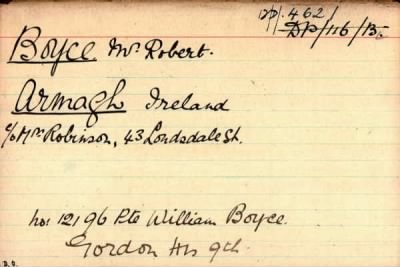 DP/.462/
DP/116/B.
Boyce Mr Robert.
Armagh Ireland
c/o Mrs Robinson, 43 Londsdale St.
No: 12196 Pte William Boyce.
Gordon Hrs 9th
B. O.